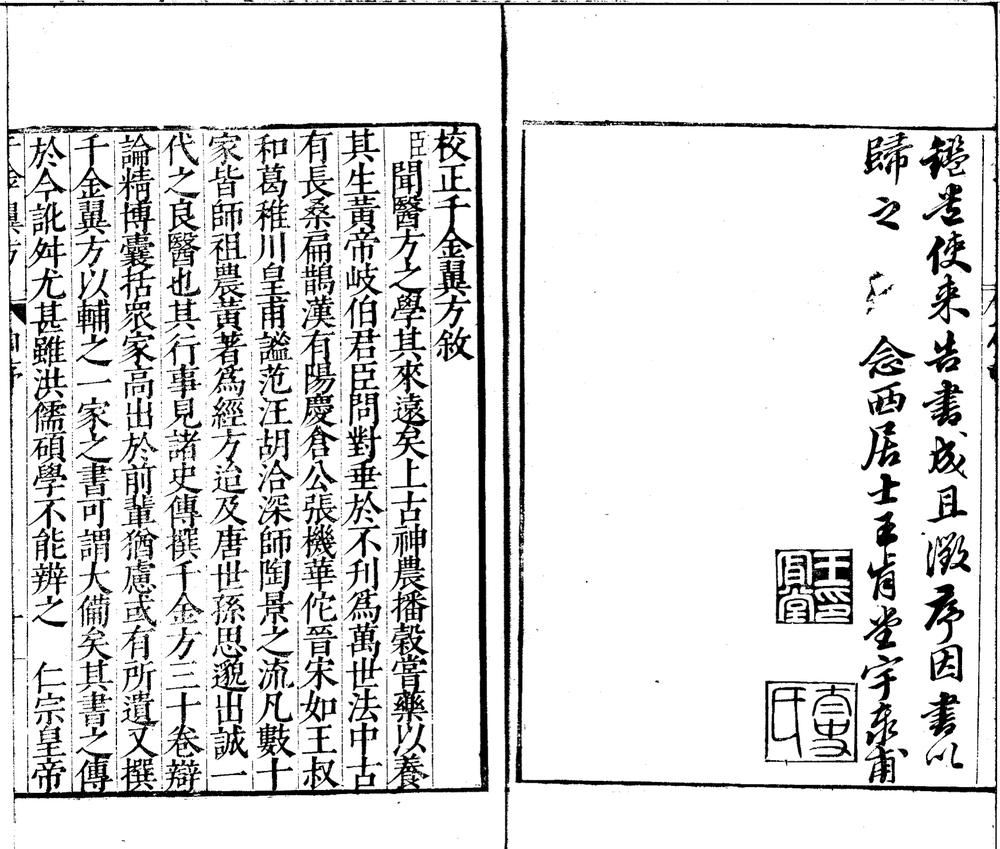 鑑堂使来告書成且徵序因書以
歸之 念西居士王肯堂宇泰甫
王肯堂印
太史氏
校正千金翼方敘
臣聞醫方之學其來遠矣上古神農播穀嘗藥以養
其生黃帝岐伯君臣問對垂於不刊爲萬世法中古
有長桑扁鵲漢有陽慶倉公張機華佗晉宋如王叔
和葛稚川皇甫謐范汪胡洽深師陶景之流凡數十
家皆師祖農黃著爲經方迨及唐世孫思邈出誠一
代之良醫也其行事見諸史傳撰千金方三十卷辯
論精博囊括眾家高出於前輩猶慮或有所遺又撰
千金翼方以輔之一家之書可謂大備矣其書之傳
於今訛舛尤甚雖洪儒碩學不能辨之 仁宗皇帝
千金翼方